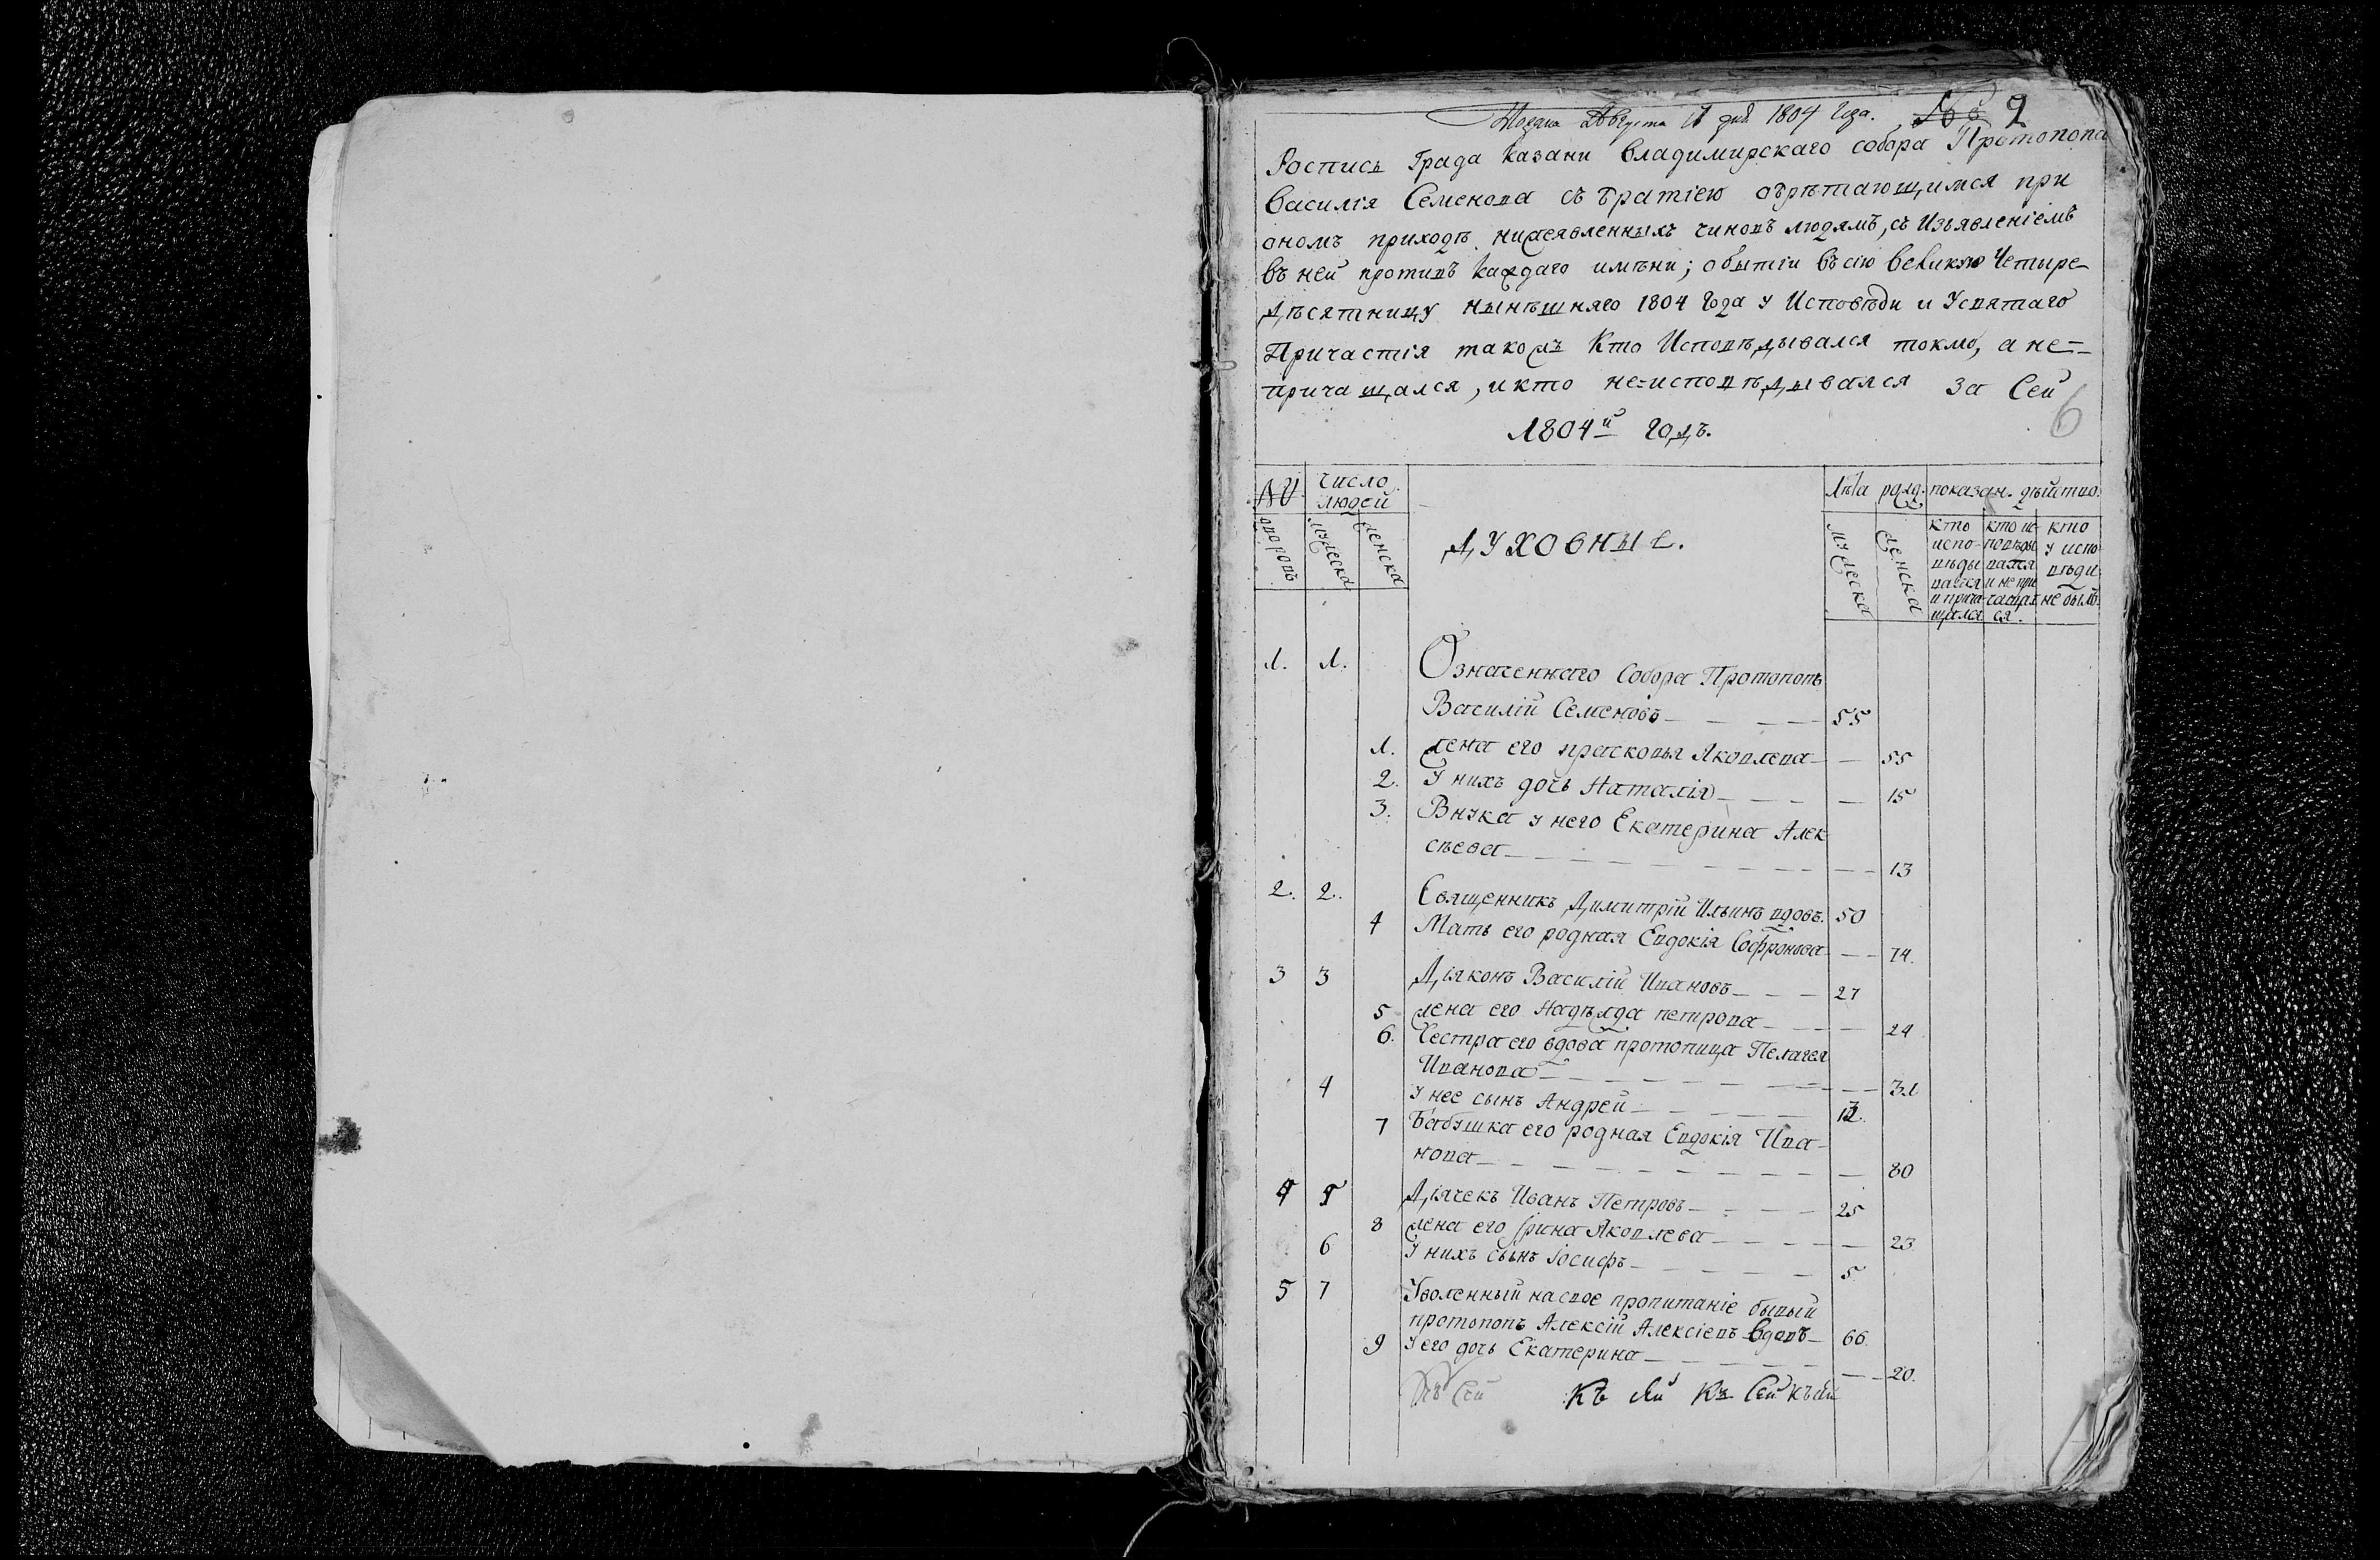 Подана Августа 11 дня 1804 года. № 2
Роспись Града Казани Владимирскаго собора Протопопа
Василiя Семенова съ братiею обрѣтающимся при
ономъ приходѣ нижеявленныхъ чиновъ людямъ, съ Изъявленiемъ
въ ней противъ каждаго имѣни; о бытiи въ сiю великую Четыре-
Десятницу нынѣшняго 1804 года у Исповѣди и У святаго
Причастiя такожъ Кто Исповѣдывался токмо, а не=
причащался, и кто не=исповѣдывался за Сей
6
1804й годъ.
число людей
Лѣта рожд. показан. дѣйство.
дворовъ мужеска женска
Духовные.
мужеска женска
кто испо-вѣды вался и прича-щался
кто ис-повѣды вался и не при-чащал-ся.
кто у испо вѣди не былъ
1. 1. Означеннаго Собора Протопопъ
Василiй Семеновъ 55
1. жена его прасковья Яковлева 55
2. У нихъ дочь Наталiя 15
3. Внука у него Екатерина Алек
сѣева 13
2. 2. Священникъ Димитрiй Ильинъ вдовъ. 50
4 Мать его родная Евдокiя Софроньева 74.
3 3 Дiяконъ Василiй Ивановъ 27
5 жена его Надѣжда петрова 24
6. Сестра его вдова протопица Пелагея
Иванова 31
4 У нее сынъ Андрей
7 Бабушка его родная Евдокiя Ива-
нова 80
4 5 Дiячекъ Иванъ Петровъ 25
8 жена его Iрина Яковлева 23
6 У нихъ сынъ Iосифъ 5
5 7 Уволенный на свое пропитанiе бывый
протопопъ Алексiй Алексiевъ вдовъ 66.
9 У его дочь Екатерина 20.
Къ Сей Къ Къ Сей